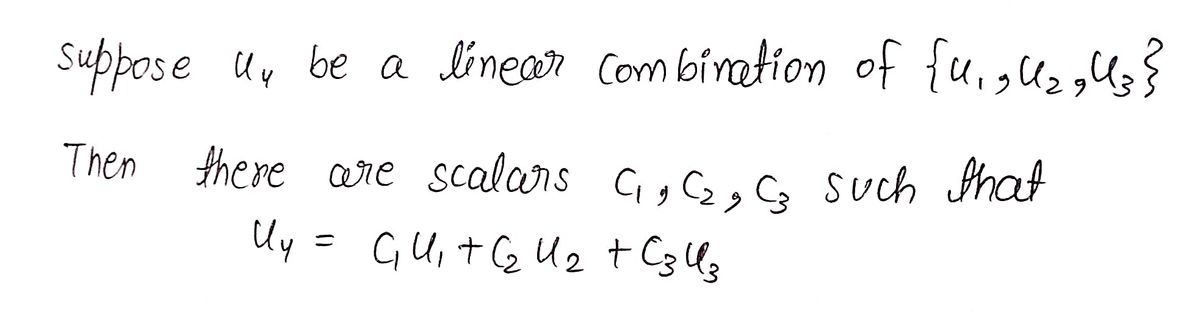 suppose u₄ be a linear combination of {u₁,u₂,u₃}
Then there are scalars C₁,C₂,C₃ such that
u₄ = C₁u₁+C₂u₂+C₃u₃